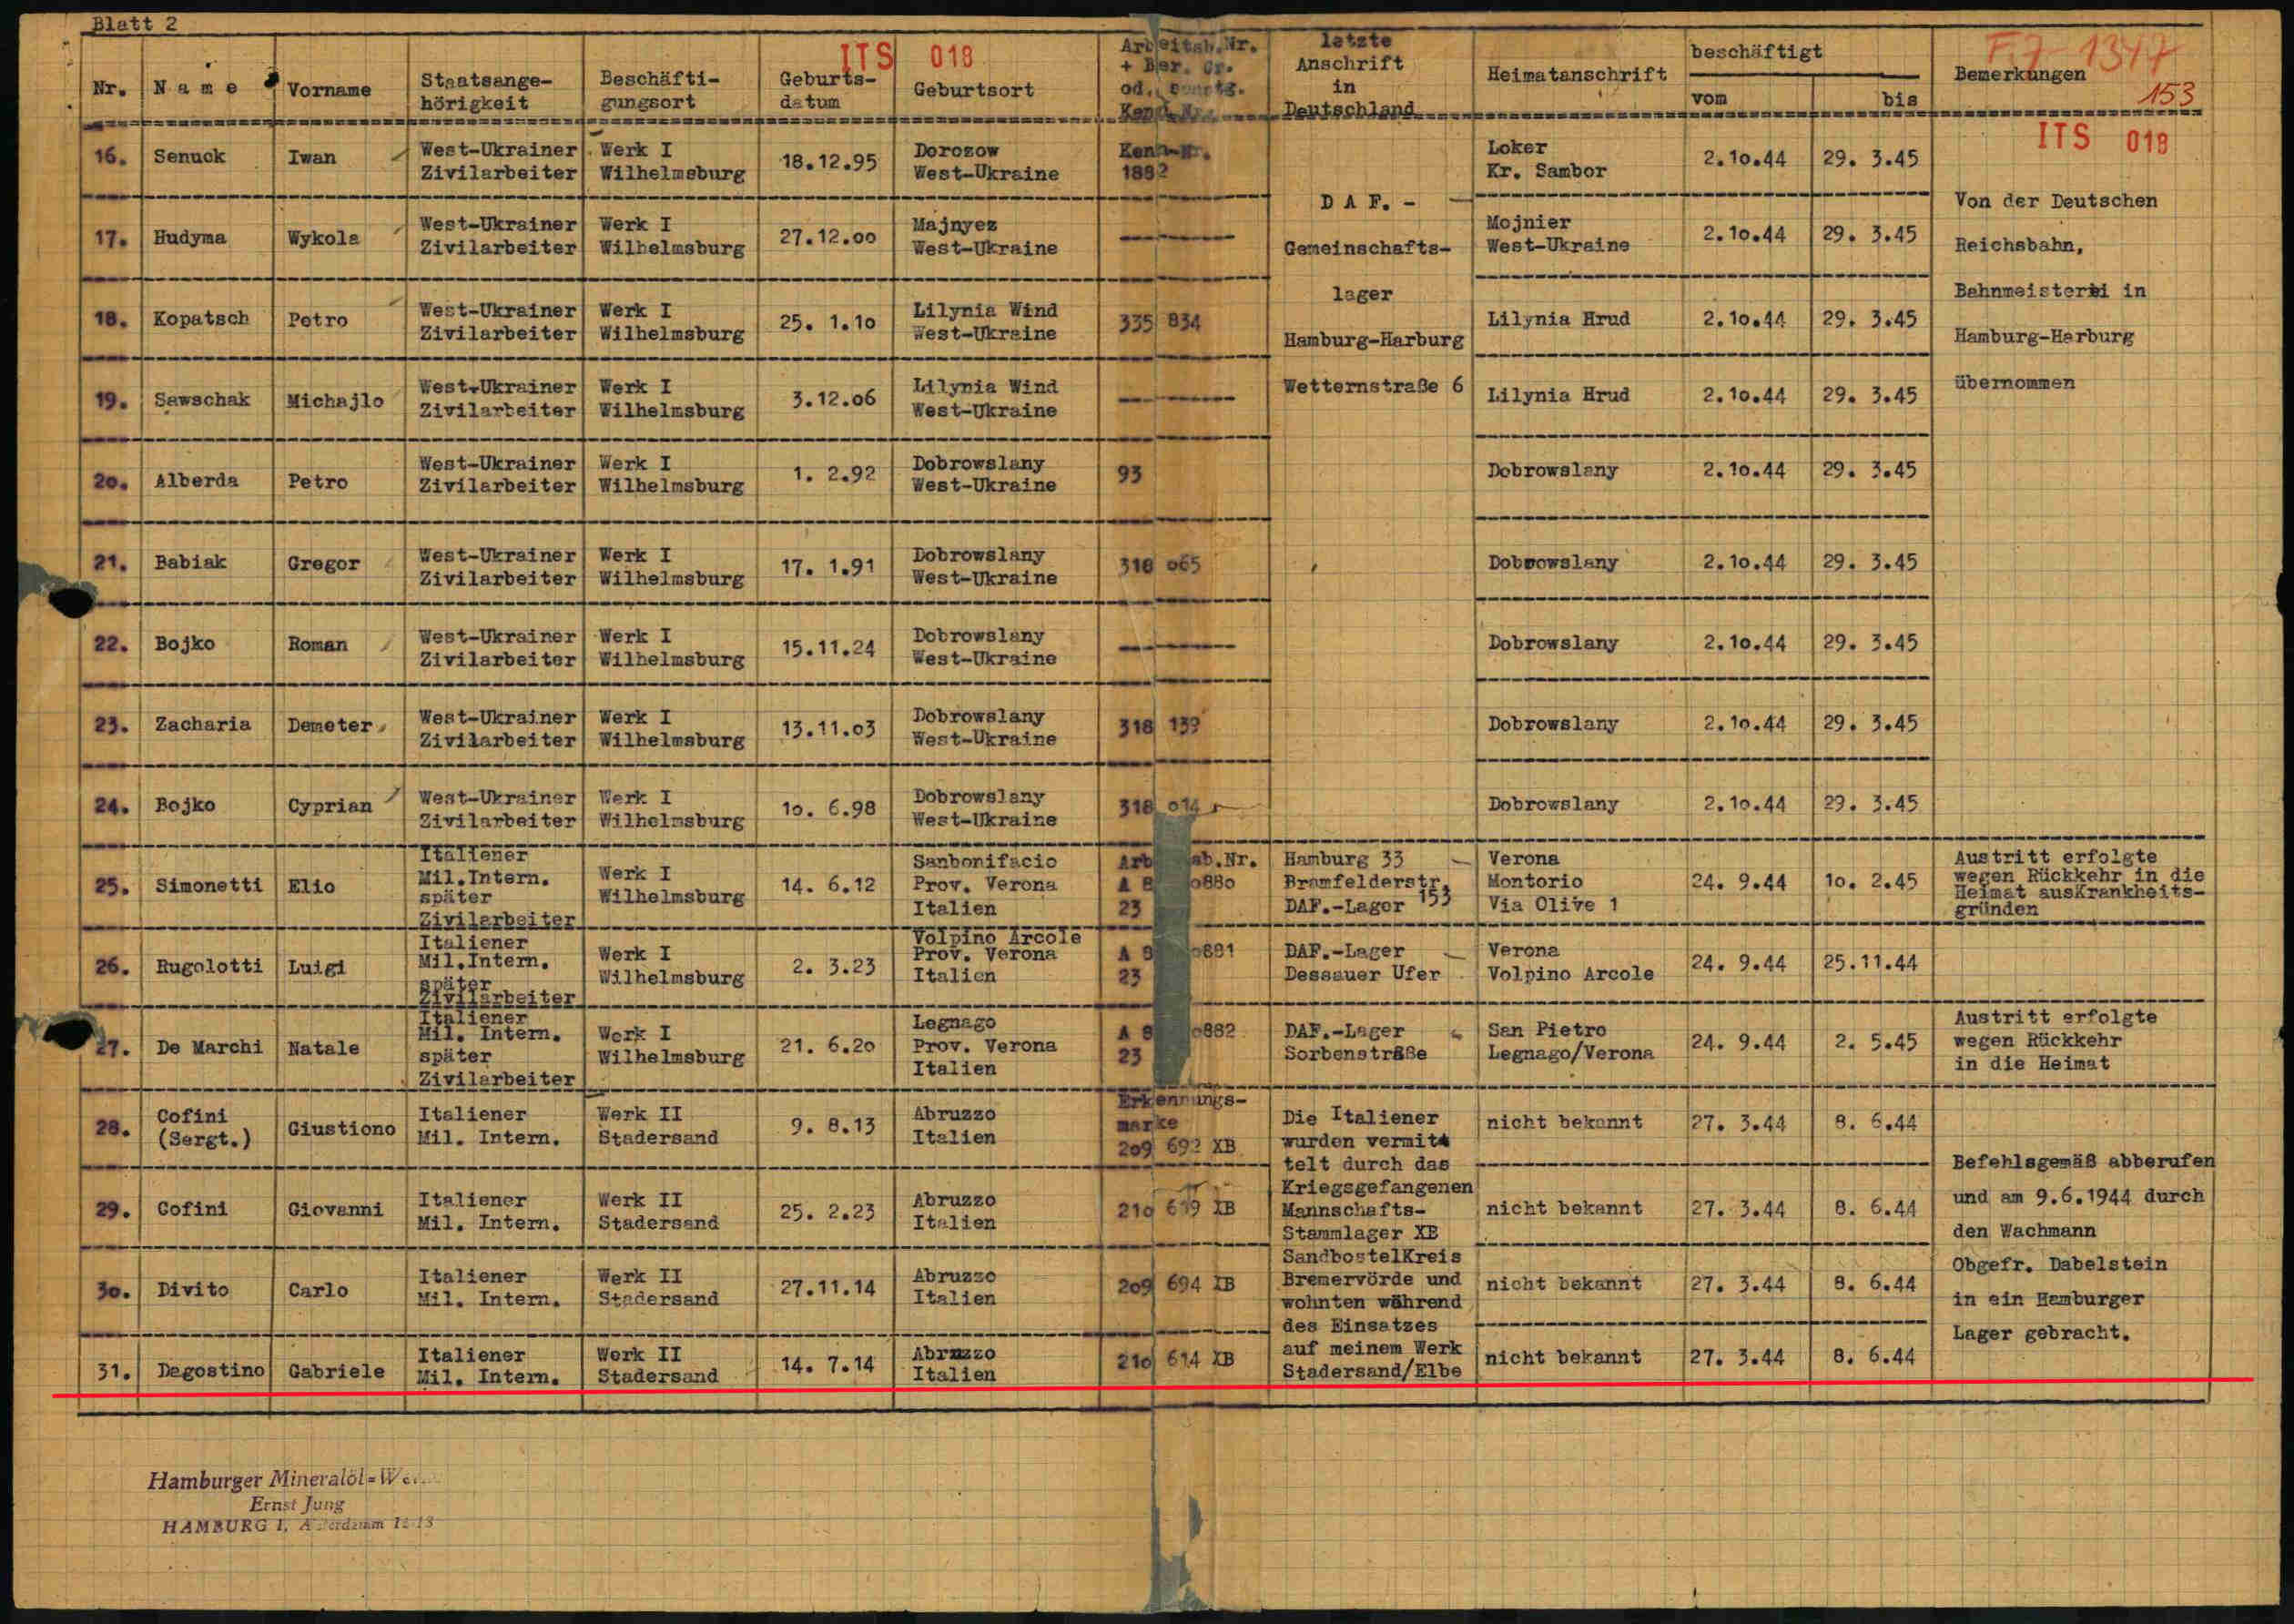 Blatt 2
ITS 018
F 7-1347
153
ITS 018
Nr. | Name | Vorname | Staatsange-hörigkeit | Beschäfti-gungsort | Geburts-datum | Geburtsort | Arbeitsb.Nr. + Ber. Gr. od. Kenn.Nr. | letzte Anschrift in Deutschland | Heimatanschrift | beschäftigt vom | bis | Bemerkungen
16. | Senuck | Iwan | West-Ukrainer Zivilarbeiter | Werk I Wilhelmsburg | 18.12.95 | Dorozow West-Ukraine | Kenn-Nr. 1882 | Loker Kr. Sambor | 2.10.44 | 29. 3.45
17. | Hudyma | Wykola | West-Ukrainer Zivilarbeiter | Werk I Wilhelmsburg | 27.12.00 | Majnyez West-Ukraine | ——— | Mojnier West-Ukraine | 2.10.44 | 29. 3.45
18. | Kopatsch | Petro | West-Ukrainer Zivilarbeiter | Werk I Wilhelmsburg | 25. 1.10 | Lilynia Wind West-Ukraine | 335 834 | Lilynia Hrud | 2.10.44 | 29. 3.45
19. | Sawschak | Michajlo | West-Ukrainer Zivilarbeiter | Werk I Wilhelmsburg | 3.12.06 | Lilynia Wind West-Ukraine | ——— | Lilynia Hrud | 2.10.44 | 29. 3.45
20. | Alberda | Petro | West-Ukrainer Zivilarbeiter | Werk I Wilhelmsburg | 1. 2.92 | Dobrowslany West-Ukraine | 93 | Dobrowslany | 2.10.44 | 29. 3.45
21. | Babiak | Gregor | West-Ukrainer Zivilarbeiter | Werk I Wilhelmsburg | 17. 1.91 | Dobrowslany West-Ukraine | 318 065 | Dobrowslany | 2.10.44 | 29. 3.45
22. | Bojko | Roman | West-Ukrainer Zivilarbeiter | Werk I Wilhelmsburg | 15.11.24 | Dobrowslany West-Ukraine | ——— | Dobrowslany | 2.10.44 | 29. 3.45
23. | Zacharia | Demeter | West-Ukrainer Zivilarbeiter | Werk I Wilhelmsburg | 13.11.03 | Dobrowslany West-Ukraine | 318 139 | Dobrowslany | 2.10.44 | 29. 3.45
24. | Bojko | Cyprian | West-Ukrainer Zivilarbeiter | Werk I Wilhelmsburg | 10. 6.98 | Dobrowslany West-Ukraine | 318 014 | Dobrowslany | 2.10.44 | 29. 3.45
D A F. -
Gemeinschafts-
lager
Hamburg-Harburg
Wetternstraße 6
Von der Deutschen
Reichsbahn,
Bahnmeisterei in
Hamburg-Harburg
übernommen
25. | Simonetti | Elio | Italiener Mil.Intern. später Zivilarbeiter | Werk I Wilhelmsburg | 14. 6.12 | Sanbonifacio Prov. Verona Italien | Arb ab.Nr. A 8 0880 23 | Hamburg 33 Bramfelderstr. 153 DAF.-Lager | Verona Montorio Via Olive 1 | 24. 9.44 | 10. 2.45 | Austritt erfolgte wegen Rückkehr in die Heimat ausKrankheits-gründen
26. | Rugolotti | Luigi | Italiener Mil.Intern. später Zivilarbeiter | Werk I Wilhelmsburg | 2. 3.23 | Volpino Arcole Prov. Verona Italien | A 8 0881 23 | DAF.-Lager Dessauer Ufer | Verona Volpino Arcole | 24. 9.44 | 25.11.44
27. | De Marchi | Natale | Italiener Mil. Intern. später Zivilarbeiter | Werk I Wilhelmsburg | 21. 6.20 | Legnago Prov. Verona Italien | A 8 0882 23 | DAF.-Lager Sorbenstraße | San Pietro Legnago/Verona | 24. 9.44 | 2. 5.45 | Austritt erfolgte wegen Rückkehr in die Heimat
28. | Cofini (Sergt.) | Giustiono | Italiener Mil. Intern. | Werk II Stadersand | 9. 8.13 | Abruzzo Italien | Erkennungs-marke 209 692 XB | nicht bekannt | 27. 3.44 | 8. 6.44
29. | Cofini | Giovanni | Italiener Mil. Intern. | Werk II Stadersand | 25. 2.23 | Abruzzo Italien | 210 619 XB | nicht bekannt | 27. 3.44 | 8. 6.44
30. | Divito | Carlo | Italiener Mil. Intern. | Werk II Stadersand | 27.11.14 | Abruzzo Italien | 209 694 XB | nicht bekannt | 27. 3.44 | 8. 6.44
31. | Degostino | Gabriele | Italiener Mil. Intern. | Werk II Stadersand | 14. 7.14 | Abruzzo Italien | 210 614 XB | nicht bekannt | 27. 3.44 | 8. 6.44
Die Italiener
wurden vermit
telt durch das
Kriegsgefangenen
Mannschafts-
Stammlager XB
SandbostelKreis
Bremervörde und
wohnten während
des Einsatzes
auf meinem Werk
Stadersand/Elbe
Befehlsgemäß abberufen
und am 9.6.1944 durch
den Wachmann
Obgefr. Dabelstein
in ein Hamburger
Lager gebracht.
Hamburger Mineralöl=
Ernst Jung
HAMBURG 1,